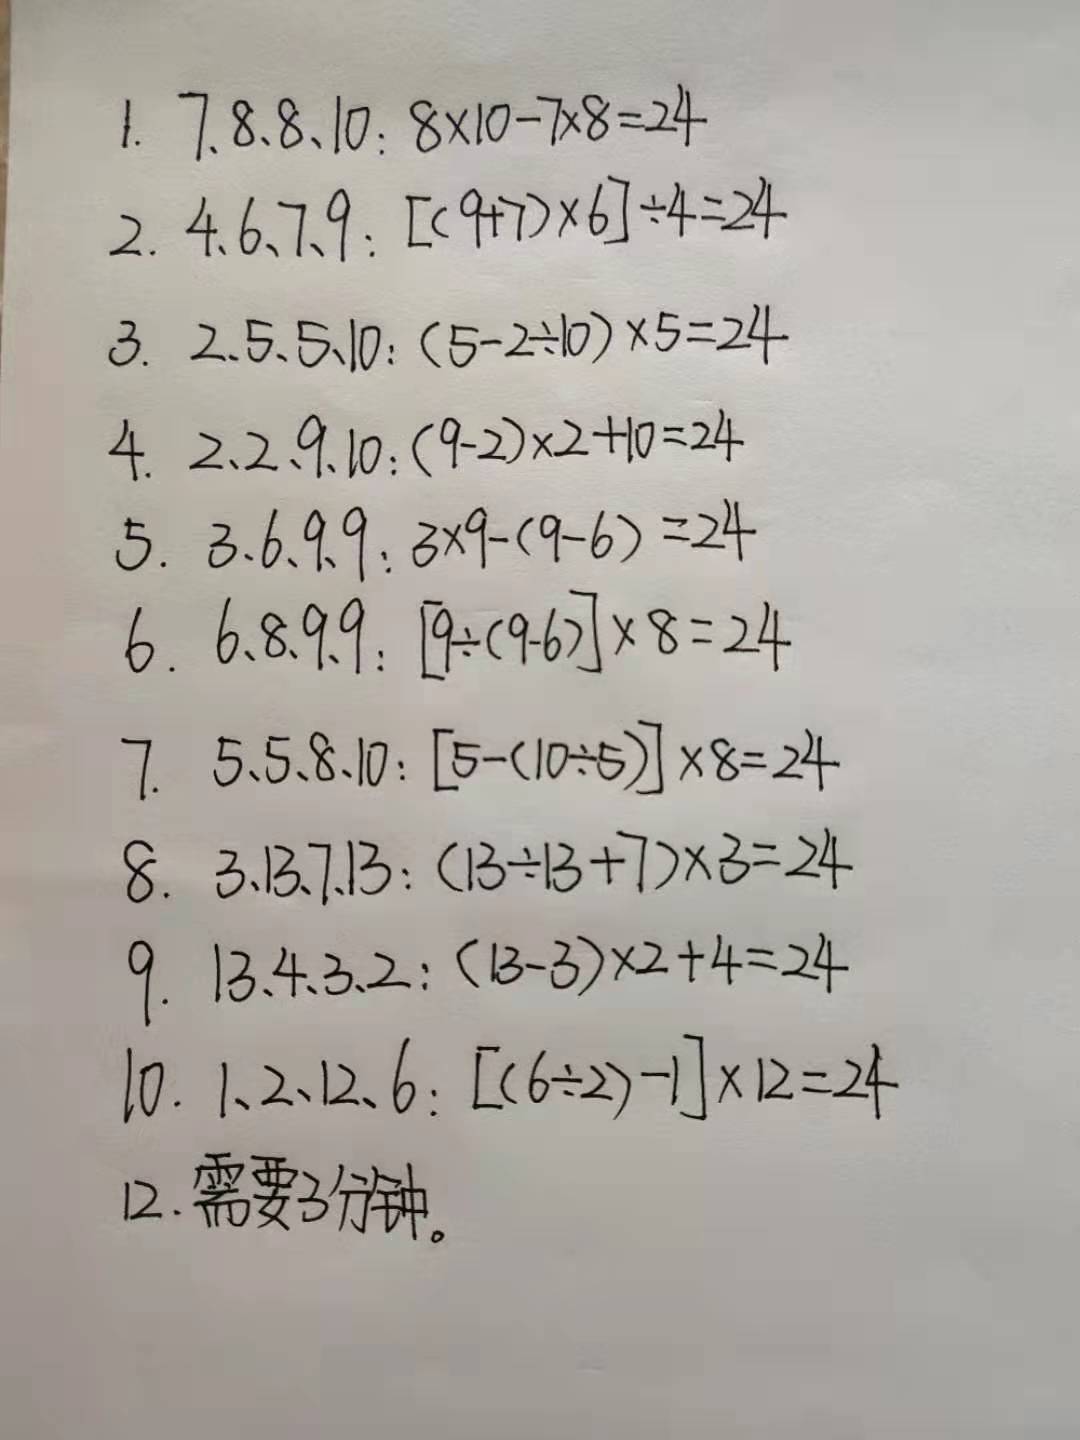 1. 7、8、8、10: 8×10-7×8=24
2. 4、6、7、9: [(9+7)×6]÷4=24
3. 2、5、5、10: (5-2÷10)×5=24
4. 2、2、9、10: (9-2)×2+10=24
5. 3、6、9、9: 3×9-(9-6)=24
6. 6、8、9、9: [9÷(9-6)]×8=24
7. 5、5、8、10: [5-(10÷5)]×8=24
8. 3、13、7、13: (13÷13+7)×3=24
9. 13、4、3、2: (13-3)×2+4=24
10. 1、2、12、6: [(6÷2)-1]×12=24
12. 需要3分钟。